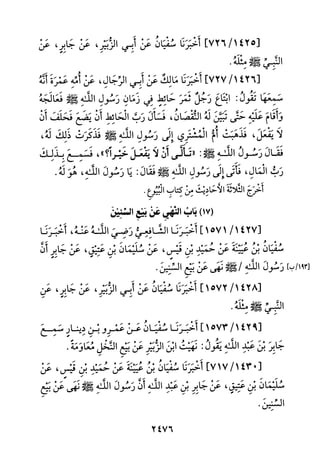 [٧٢٦/١٤٢٥] أَخْبَرَنَا سُفْيَانُ عَنْ أَبِي الزُّبَيْرِ، عَنْ جَابِرٍ، عَنِ
النَّبِيِّ ﷺ مِثْلَهُ.
[٧٢٧/١٤٢٦] أَخْبَرَنَا مَالِكٌ عَنْ أَبِي الرِّجَالِ، عَنْ أُمِّهِ عَمْرَةَ أَنَّهُ
سَمِعَهَا تَقُولُ: ابْتَاعَ رَجُلٌ ثَمَرَ حَائِطٍ فِي زَمَانِ رَسُولِ اللَّهِ ﷺ فَعَالَجَهُ
وَأَقَامَ عَلَيْهِ حَتَّى تَبَيَّنَ لَهُ النُّقْصَانُ، فَسَأَلَ رَبَّ الْحَائِطِ أَنْ يَضَعَ فَحَلَفَ أَنْ
لَا يَفْعَلَ، فَذَهَبَتْ أُمُّ الْمُشْتَرِي إِلَى رَسُولِ اللَّهِ ﷺ فَذَكَرَتْ ذَلِكَ لَهُ،
فَقَالَ رَسُولُ اللَّهِ ﷺ: «تَأَلَّى أَنْ لَا يَفْعَلَ خَيْرًا؟»، فَسَمِعَ بِذَلِكَ
رَبُّ الْمَالِ، فَأَتَى إِلَى رَسُولِ اللَّهِ ﷺ فَقَالَ: يَا رَسُولَ اللَّهِ، هُوَ لَهُ.
أَخْرَجَ الْأَحَادِيثَ الثَّلَاثَةَ مِنْ كِتَابِ الْبُيُوعِ.
(١٧) بَابُ النَّهْيِ عَنْ بَيْعِ السِّنِينَ
[١٥٧١/١٤٢٧] أَخْبَرَنَا الشَّافِعِيُّ رَضِيَ اللَّهُ عَنْهُ، أَخْبَرَنَا
سُفْيَانُ بْنُ عُيَيْنَةَ عَنْ حُمَيْدِ بْنِ قَيْسٍ، عَنْ سُلَيْمَانَ بْنِ عَتِيقٍ، عَنْ جَابِرٍ أَنَّ
[١٩٣/ب] رَسُولَ اللَّهِ / ﷺ نَهَى عَنْ بَيْعِ السِّنِينَ.
[١٥٧٢/١٤٢٨] أَخْبَرَنَا سُفْيَانُ عَنْ أَبِي الزُّبَيْرِ، عَنْ جَابِرٍ، عَنِ
النَّبِيِّ ﷺ مِثْلَهُ.
[١٥٧٣/١٤٢٩] أَخْبَرَنَا سُفْيَانُ عَنْ عَمْرِو بْنِ دِينَارٍ سَمِعَ
جَابِرَ بْنَ عَبْدِ اللَّهِ يَقُولُ: نَهَيْتُ ابْنَ الزُّبَيْرِ عَنْ بَيْعِ النَّخْلِ مُعَاوَمَةً.
[٧١٧/١٤٣٠] أَخْبَرَنَا سُفْيَانُ بْنُ عُيَيْنَةَ عَنْ حُمَيْدِ بْنِ قَيْسٍ، عَنْ
سُلَيْمَانَ بْنِ عَتِيقٍ، عَنْ جَابِرِ بْنِ عَبْدِ اللَّهِ أَنَّ رَسُولَ اللَّهِ ﷺ نَهَى عَنْ بَيْعِ
السِّنِينَ.
٢٤٧٦